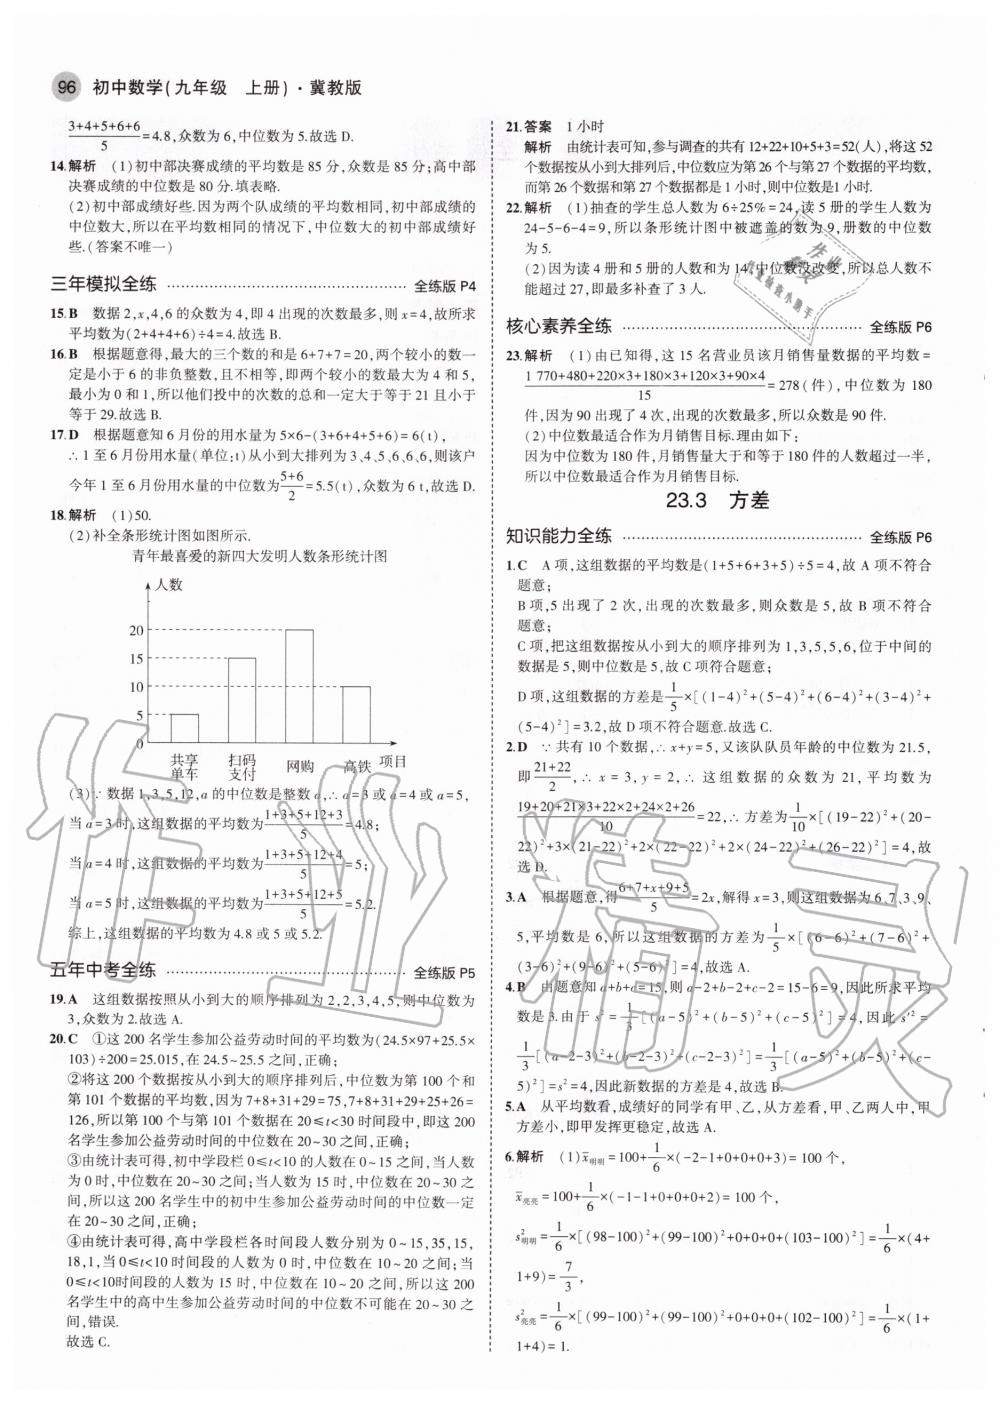 96 初中数学(九年级 上册)·冀教版
(3+4+5+6+6)/5=4.8,众数为6,中位数为5.故选D.
14.解析 (1)初中部决赛成绩的平均数是85分,众数是85分;高中部
决赛成绩的中位数是80分.填表略.
(2)初中部成绩好些.因为两个队成绩的平均数相同,初中部成绩的
中位数大,所以在平均数相同的情况下,中位数大的初中部成绩好
些.(答案不唯一)
三年模拟全练 全练版 P4
15.B 数据2,x,4,6的众数为4,即4出现的次数最多,则x=4,故所求
平均数为(2+4+4+6)÷4=4.故选B.
16.B 根据题意得,最大的三个数的和是6+7+7=20,两个较小的数一
定是小于6的非负整数,且不相等,即两个较小的数最大为4和5,
最小为0和1,所以他们投中的次数的总和一定大于等于21且小于
等于29.故选B.
17.D 根据题意知6月份的用水量为5×6-(3+6+4+5+6)=6(t),
∴1至6月份用水量(单位:t)从小到大排列为3、4、5、6、6、6,则该户
今年1至6月份用水量的中位数为(5+6)/2=5.5(t),众数为6 t.故选D.
18.解析 (1)50.
(2)补全条形统计图如图所示.
青年最喜爱的新四大发明人数条形统计图
人数
20
15
10
5
0
共享单车 扫码支付 网购 高铁 项目
(3)∵数据1,3,5,12,a的中位数是整数a,∴a=3或a=4或a=5,
当a=3时,这组数据的平均数为(1+3+5+12+3)/5=4.8;
当a=4时,这组数据的平均数为(1+3+5+12+4)/5=5;
当a=5时,这组数据的平均数为(1+3+5+12+5)/5=5.2.
综上,这组数据的平均数为4.8或5或5.2.
五年中考全练 全练版 P5
19.A 这组数据按照从小到大的顺序排列为2,2,3,4,5,则中位数为
3,众数为2.故选A.
20.C ①这200名学生参加公益劳动时间的平均数为(24.5×97+25.5×
103)÷200=25.015,在24.5~25.5之间,正确;
②将这200个数据按从小到大的顺序排列后,中位数为第100个和
第101个数据的平均数,因为7+8+31+29=75,7+8+31+29+25+26=
126,所以第100个与第101个数据在20≤t<30时间段中,即这200
名学生参加公益劳动时间的中位数在20~30之间,正确;
③由统计表可得,初中学段栏0≤t<10的人数在0~15之间,当人数
为0时,中位数在20~30之间;当人数为15时,中位数在20~30之
间,所以这200名学生中的初中生参加公益劳动时间的中位数一定
在20~30之间,正确;
④由统计表可得,高中学段栏各时间段人数分别为0~15,35,15,
18,1,当0≤t<10时间段的人数为0时,中位数在10~20之间;当
0≤t<10时间段的人数为15时,中位数在10~20之间,所以这200
名学生中的高中生参加公益劳动时间的中位数不可能在20~30之
间,错误.
故选C.
21.答案 1小时
解析 由统计表可知,参与调查的共有12+22+10+5+3=52(人),将这52
个数据按从小到大排列后,中位数应为第26个与第27个数据的平均数,
而第26个数据和第27个数据都是1小时,则中位数是1小时.
22.解析 (1)抽查的学生总人数为6÷25%=24,读5册的学生人数为
24-5-6-4=9,所以条形统计图中被遮盖的数为9,册数的中位数
为5.
(2)因为读4册和5册的人数和为14,中位数没改变,所以总人数不
能超过27,即最多补查了3人.
核心素养全练 全练版 P6
23.解析 (1)由已知得,这15名营业员该月销售量数据的平均数=
(1 770+480+220×3+180×3+120×3+90×4)/15=278(件),中位数为180
件,因为90出现了4次,出现的次数最多,所以众数是90件.
(2)中位数最适合作为月销售目标.理由如下:
因为中位数为180件,月销售量大于和等于180件的人数超过一半,
所以中位数最适合作为月销售目标.
23.3 方差
知识能力全练 全练版 P6
1.C A项,这组数据的平均数是(1+5+6+3+5)÷5=4,故A项不符合
题意;
B项,5出现了2次,出现的次数最多,则众数是5,故B项不符合
题意;
C项,把这组数据按从小到大的顺序排列为1,3,5,5,6,位于中间的
数据是5,则中位数是5,故C项符合题意;
D项,这组数据的方差是1/5×[(1-4)²+(5-4)²+(6-4)²+(3-4)²+
(5-4)²]=3.2,故D项不符合题意.故选C.
2.D ∵共有10个数据,∴x+y=5,又该队队员年龄的中位数为21.5,
即(21+22)/2,∴x=3,y=2,∴这组数据的众数为21,平均数为
(19+20+21×3+22×2+24×2+26)/10=22,∴方差为1/10×[(19-22)²+(20-
22)²+3×(21-22)²+2×(22-22)²+2×(24-22)²+(26-22)²]=4,故
选D.
3.A 根据题意,得(6+7+x+9+5)/5=2x,解得x=3,则这组数据为6、7、3、9、
5,平均数是6,所以这组数据的方差为1/5×[(6-6)²+(7-6)²+
(3-6)²+(9-6)²+(5-6)²]=4,故选A.
4.B 由题意知a+b+c=15,则a-2+b-2+c-2=15-6=9,因此所求平均
数是3.由于s²=1/3[(a-5)²+(b-5)²+(c-5)²]=4,因此s'²=
1/3[(a-2-3)²+(b-2-3)²+(c-2-3)²]=1/3[(a-5)²+(b-5)²+(c-
5)²]=s²=4,因此新数据的方差是4,故选B.
5.A 从平均数看,成绩好的同学有甲、乙,从方差看,甲、乙两人中,甲
方差小,即甲发挥更稳定,故选A.
6.解析 (1)x̄明明=100+1/6×(-2-1+0+0+0+3)=100个,
x̄亮亮=100+1/6×(-1-1+0+0+0+2)=100个,
s²明明=1/6×[(98-100)²+(99-100)²+0+0+0+(103-100)²]=1/6×(4+
1+9)=7/3,
s²亮亮=1/6×[(99-100)²+(99-100)²+0+0+0+(102-100)²]=1/6×(1+
1+4)=1.
作业精灵